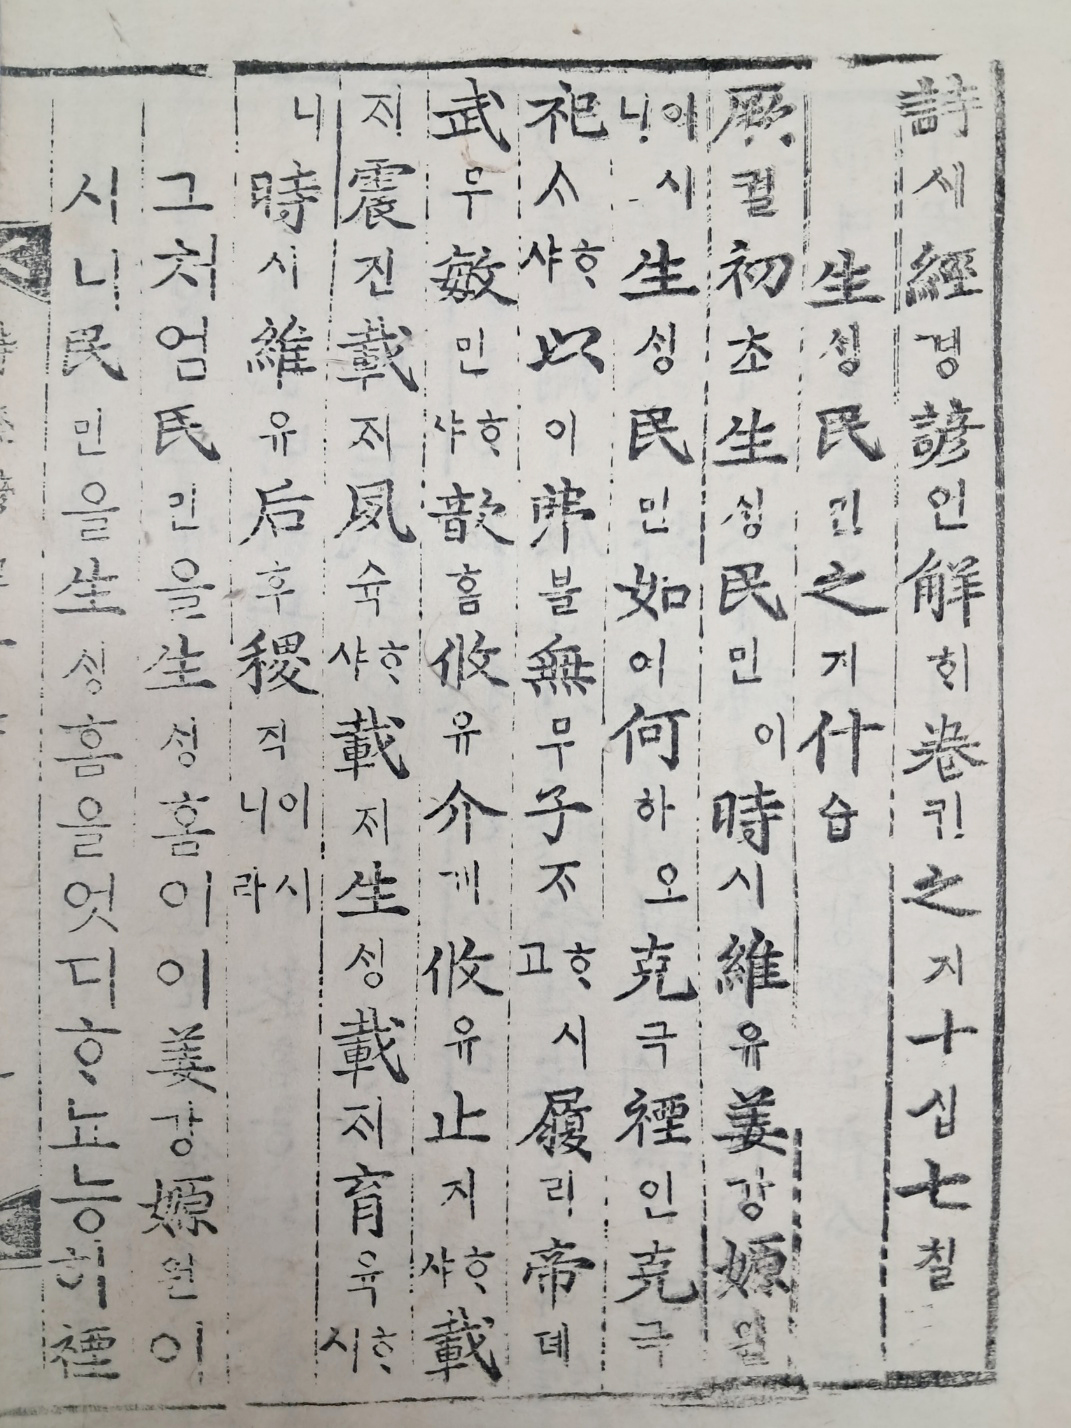 詩시經경諺언解ᄒᆡ卷권之지十십七칠
生ᄉᆡᆼ民민之지什습
厥궐初초生ᄉᆡᆼ民민이時시維유姜강嫄원
이시니生ᄉᆡᆼ民민如여何하오克극禋인克극
祀ᄉᆞᄒᆞ샤以이弗블無무子ᄌᆞᄒᆞ고시履리帝뎨
武무敏민ᄒᆞ샤歆흠攸유介개攸유止지ᄒᆞ샤載
ᄌᆡ震진載ᄌᆡ夙슉ᄒᆞ샤載ᄌᆡ生ᄉᆡᆼ載ᄌᆡ育육ᄒᆞ시
니時시維유后후稷직이시니라
그처엄民민을生ᄉᆡᆼ홈이이姜강嫄원이
시니民민을生ᄉᆡᆼ홈을엇디ᄒᆞ뇨능히禋